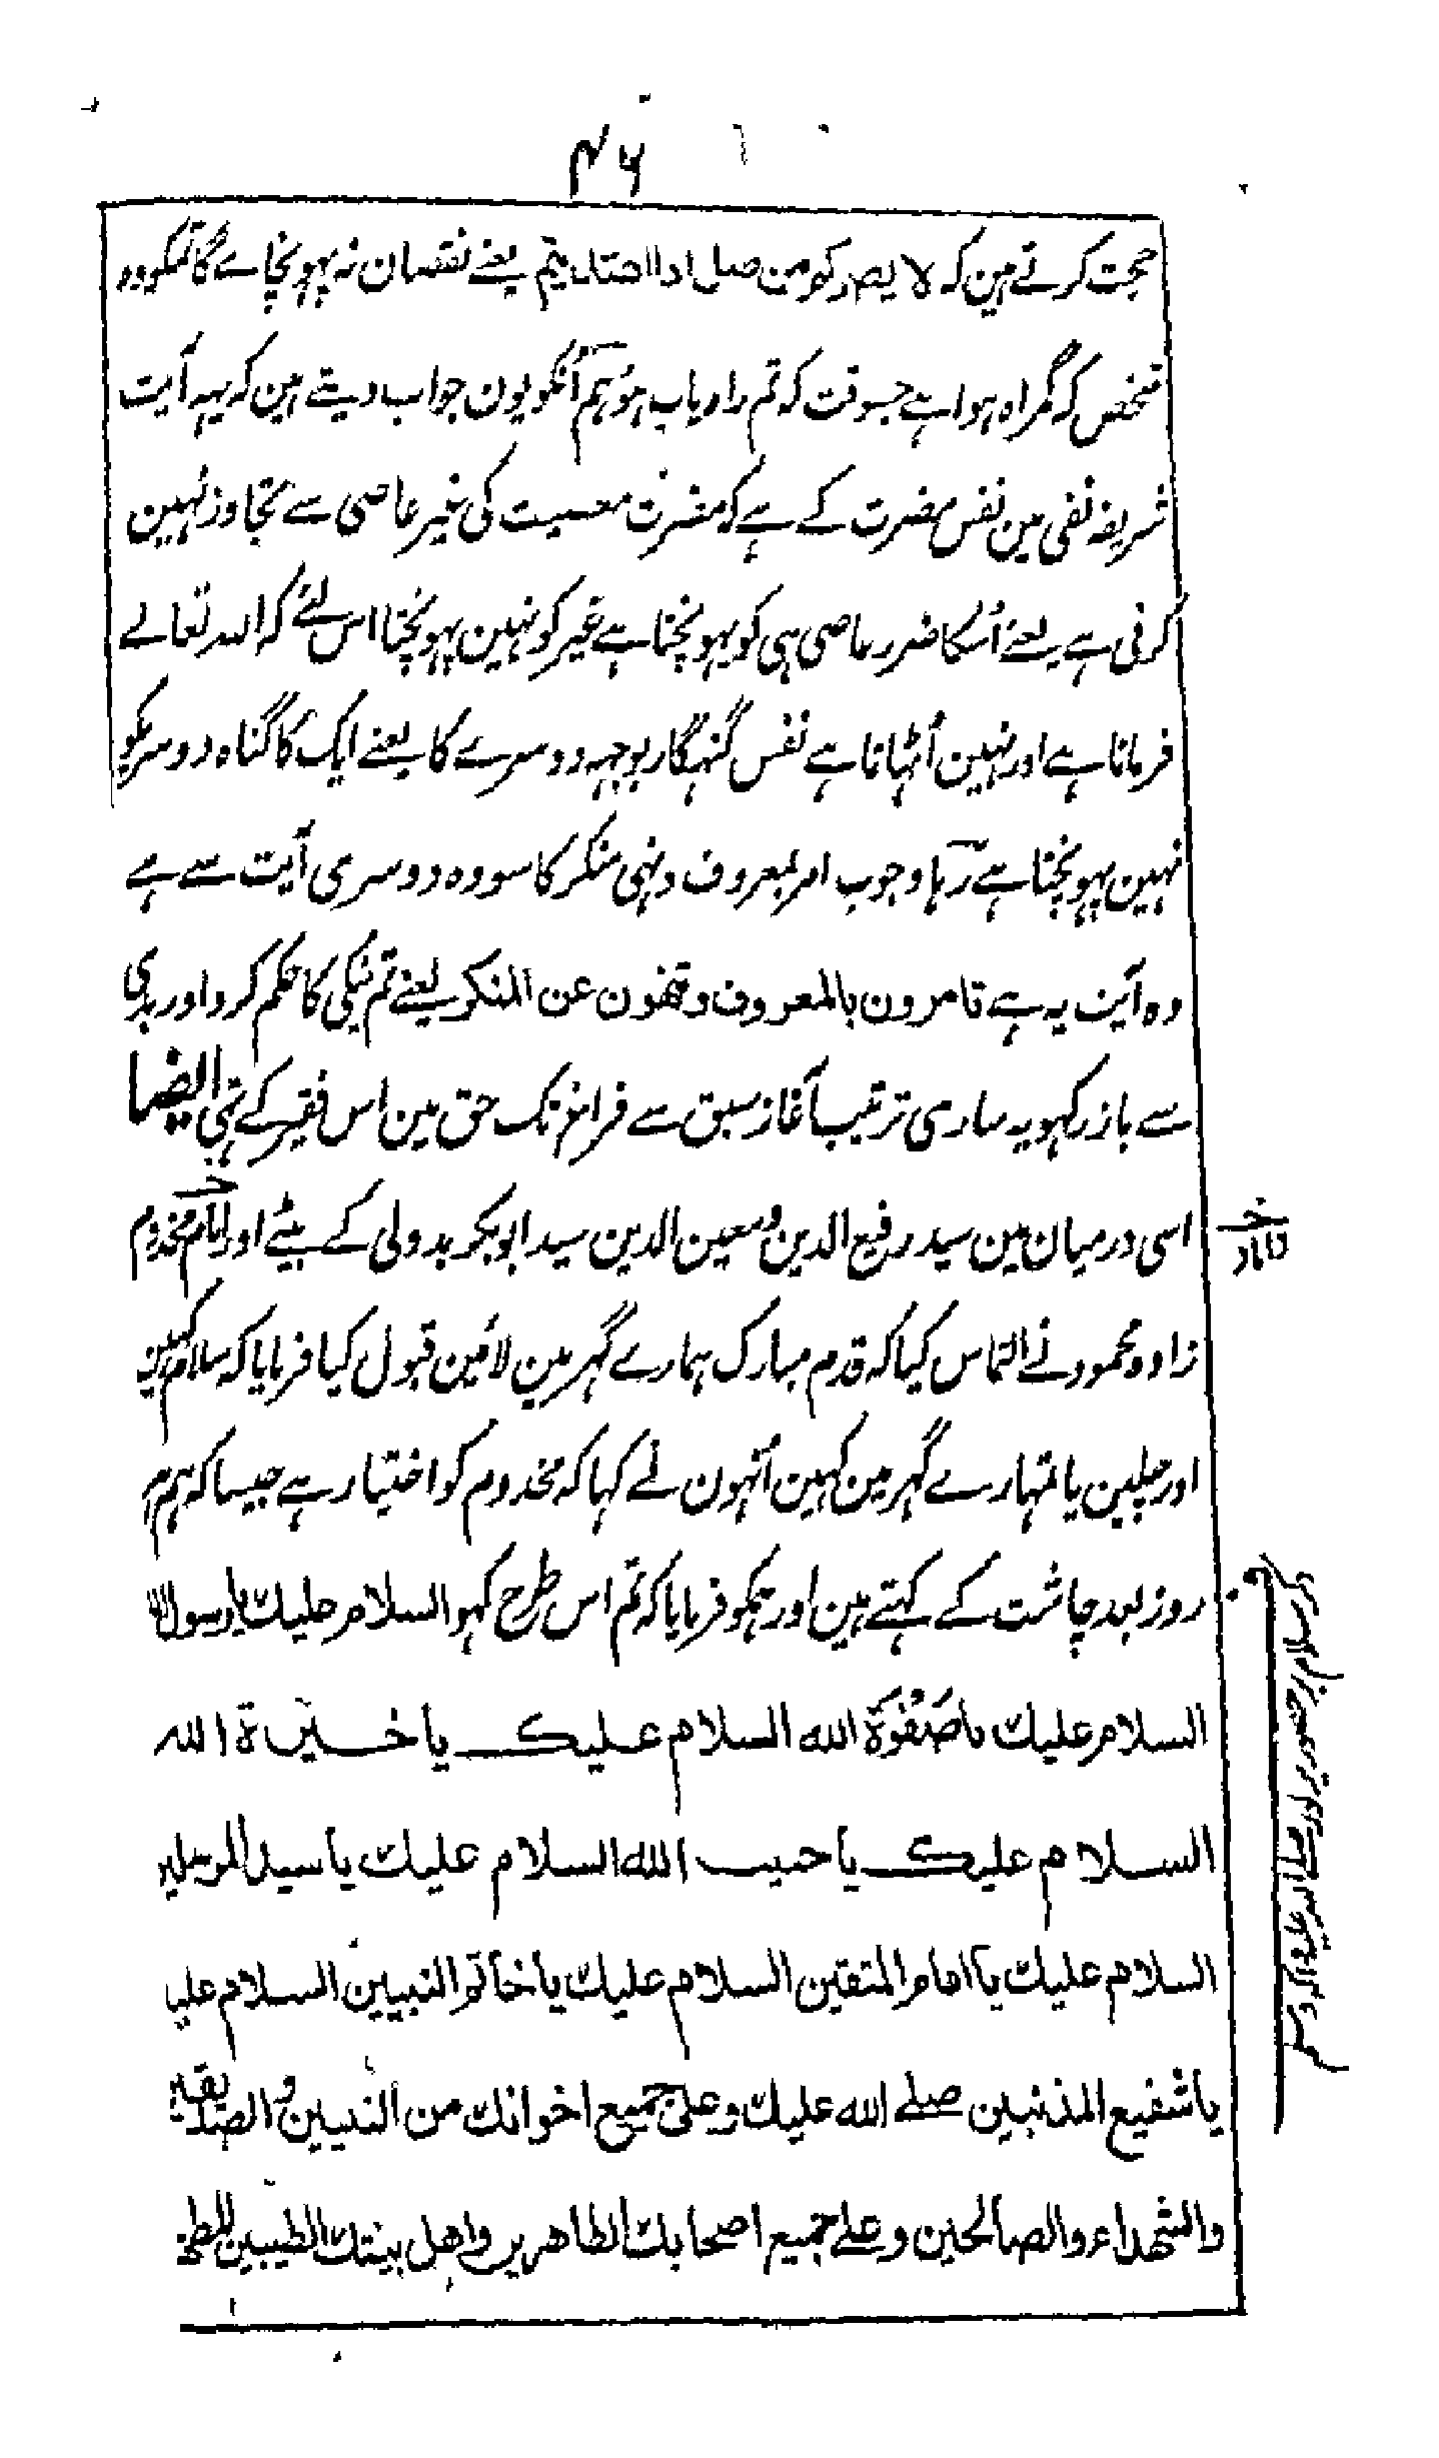 ۴۶
حجت کرتے ہین کہ لا یضرکم من ضل اذا اھتدیتم یعنے نقصان نہ پہونچاے گا تمکو وہ
شخص کہ گمراہ ہوا ہے جسوقت کہ تم راہ یاب ہو ہم اُنکو یون جواب دیتے ہین کہ یہہ آیت
شریفہ نفی مین نفس مضرت کے ہے کہ مضرت معصیت کی غیر عاصی سے تجاوز نہین
کرتی ہے یعنے اُسکا ضرر عاصی ہی کو پہونچتا ہے غیر کو نہین پہونچتا اس لئے کہ اللہ تعالے
فرماتا ہے اور نہین اُٹہاتا ہے نفس گنہگار بوجہہ دوسرے کا یعنے ایک کا گناہ دوسریکو
نہین پہونچتا ہے رہا وجوب امر بمعروف و نہی منکر کا سو وہ دوسری آیت سے ہے
وہ آیت یہ ہے تامرون بالمعروف وتنھون عن المنکر یعنے تم نیکی کا حکم کرو اور بدی
سے باز رکہو یہ ساری ترغیب آغاز سبق سے فراغ تک حق مین اس فقیر کے تہی ایضا
اسی درمیان مین سید رفیع الدین و معین الدین سید ابوبکر بدولی کے بیٹے اور امام مخدوم
زادہ محمود نے التماس کیا کہ قدم مبارک ہمارے گہر مین لائین قبول کیا فرمایا کہ سلام کہین
اور چلین یا تمہارے گہر مین کہین اُنہون نے کہا کہ مخدوم کو اختیار ہے جیسا کہ ہم ہر
روز بعد چاشت کے کہتے ہین اور ہمکو فرمایا کہ تم اس طرح کہو السلام علیک یا رسول اللہ
السلام علیک یا صَفْوَۃَ اللہ السلام علیک یا خیرۃ اللہ
السلام علیک یا حبیب اللہ السلام علیک یا سید المرسلین
السلام علیک یا امام المتقین السلام علیک یا خاتم النبیین السلام علیک
یا شفیع المذنبین صلے اللہ علیک وعلی جمیع اخوانک من النبیین والصدیقین
والشھداء والصالحین وعلے جمیع اصحابک الطاھرین واھل بیتک الطیبین